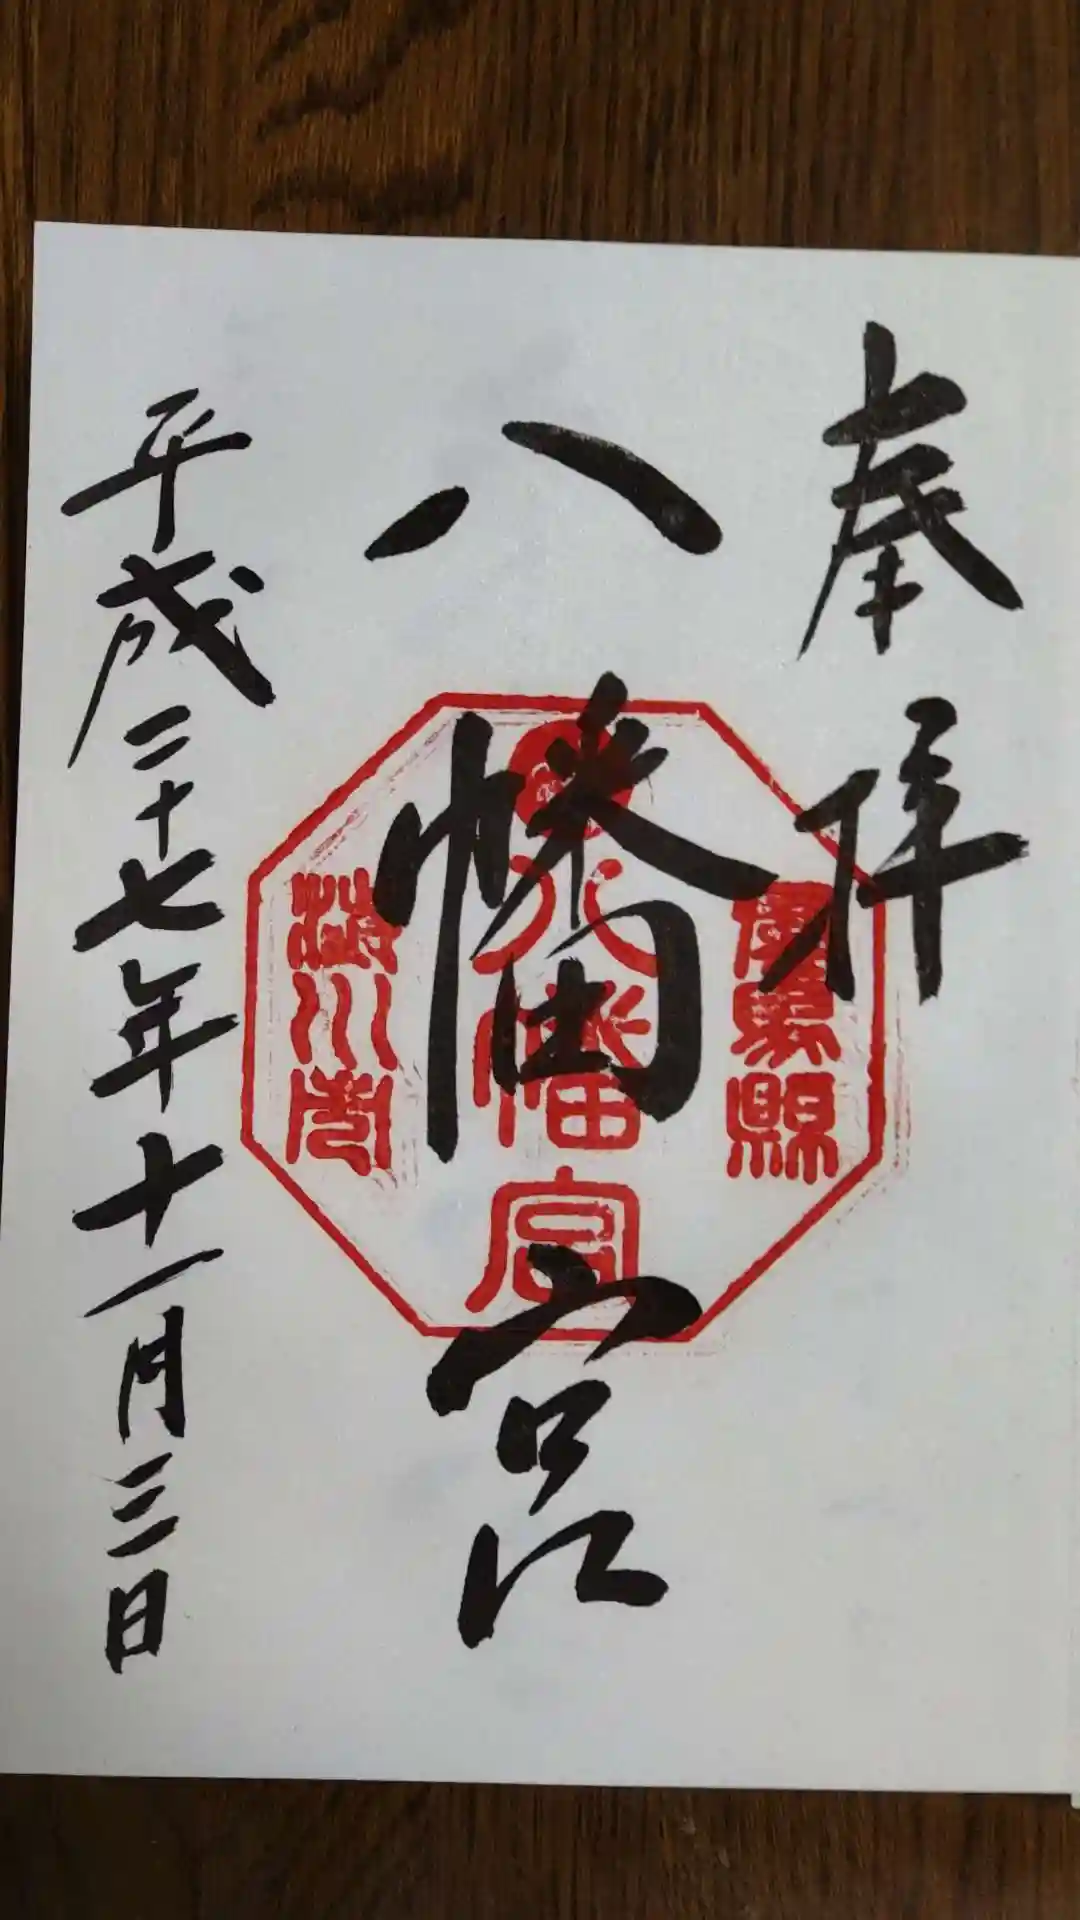 奉拝
八幡宮
平成二十七年十一月三日
群馬縣
八幡宮
渋川市